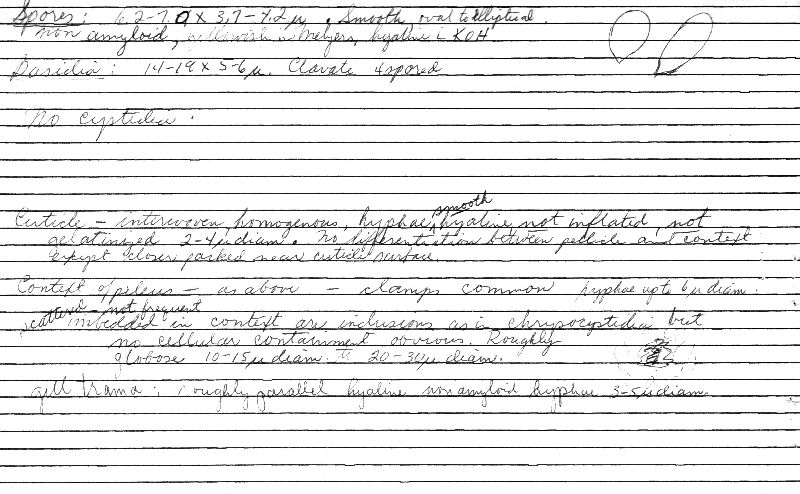 Spores: 6.2-7.0 x 3.7-4.2µ. Smooth, oval to elliptical.
non amyloid, yellowish in Melzers, hyaline i KOH
Basidia: 14-19 x 5-6µ. Clavate 4 spored
No cystidia.
smooth
Cuticle - interwoven, homogenous, hyphae, hyaline, not inflated, not
gelatinized 2-4µ diam. No differentiation between pellicle and context
except closer packed near cuticle surface.
Context of pileus - as above - clamps common hyphae up to 6µ diam.
scattered - not frequent
Imbedded in context are inclusions as in chrysocystidia but
no cellular containment obvious. Roughly
globose 10-15µ diam. to 20-30µ diam.
gill trama: roughly parallel hyaline nonamyloid hyphae 3-5µ diam.